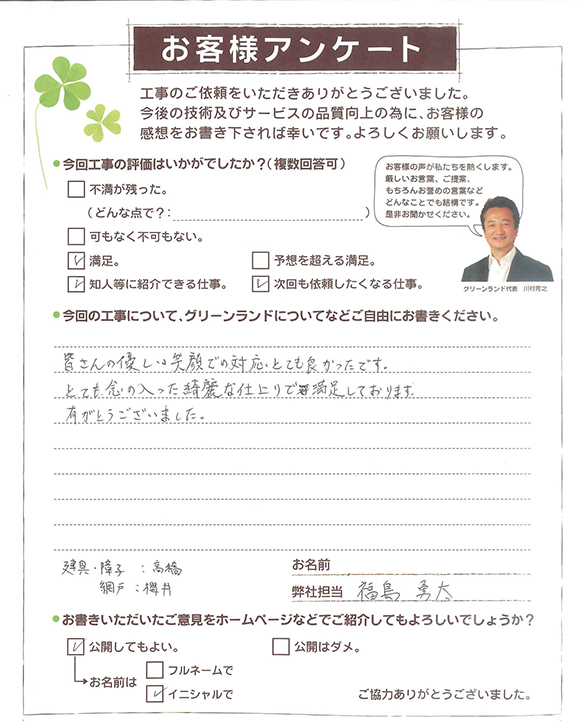 お客様アンケート
工事のご依頼をいただきありがとうございました。
今後の技術及びサービスの品質向上の為に、お客様の
感想をお書き下されば幸いです。よろしくお願いします。
●今回工事の評価はいかがでしたか？（複数回答可）
不満が残った。
（どんな点で？：　）
可もなく不可もない。
満足。
予想を超える満足。
知人等に紹介できる仕事。
次回も依頼したくなる仕事。
お客様の声が私たちを熱くします。
厳しいお言葉、ご提案、
もちろんお誉めの言葉など
どんなことでも結構です。
是非お聞かせください。
グリーンランド代表　川村芳之
●今回の工事について、グリーンランドについてなどご自由にお書きください。
皆さんの優しい笑顔での対応、とても良かったです。
とても、念の入った綺麗な仕上りで満足しております。
有がとうございました。
建具・障子：高橋
網戸：櫻井
お名前
弊社担当　福島　勇太
●お書きいただいたご意見をホームページなどでご紹介してもよろしいでしょうか？
公開してもよい。
公開はダメ。
お名前は
フルネームで
イニシャルで
ご協力ありがとうございました。